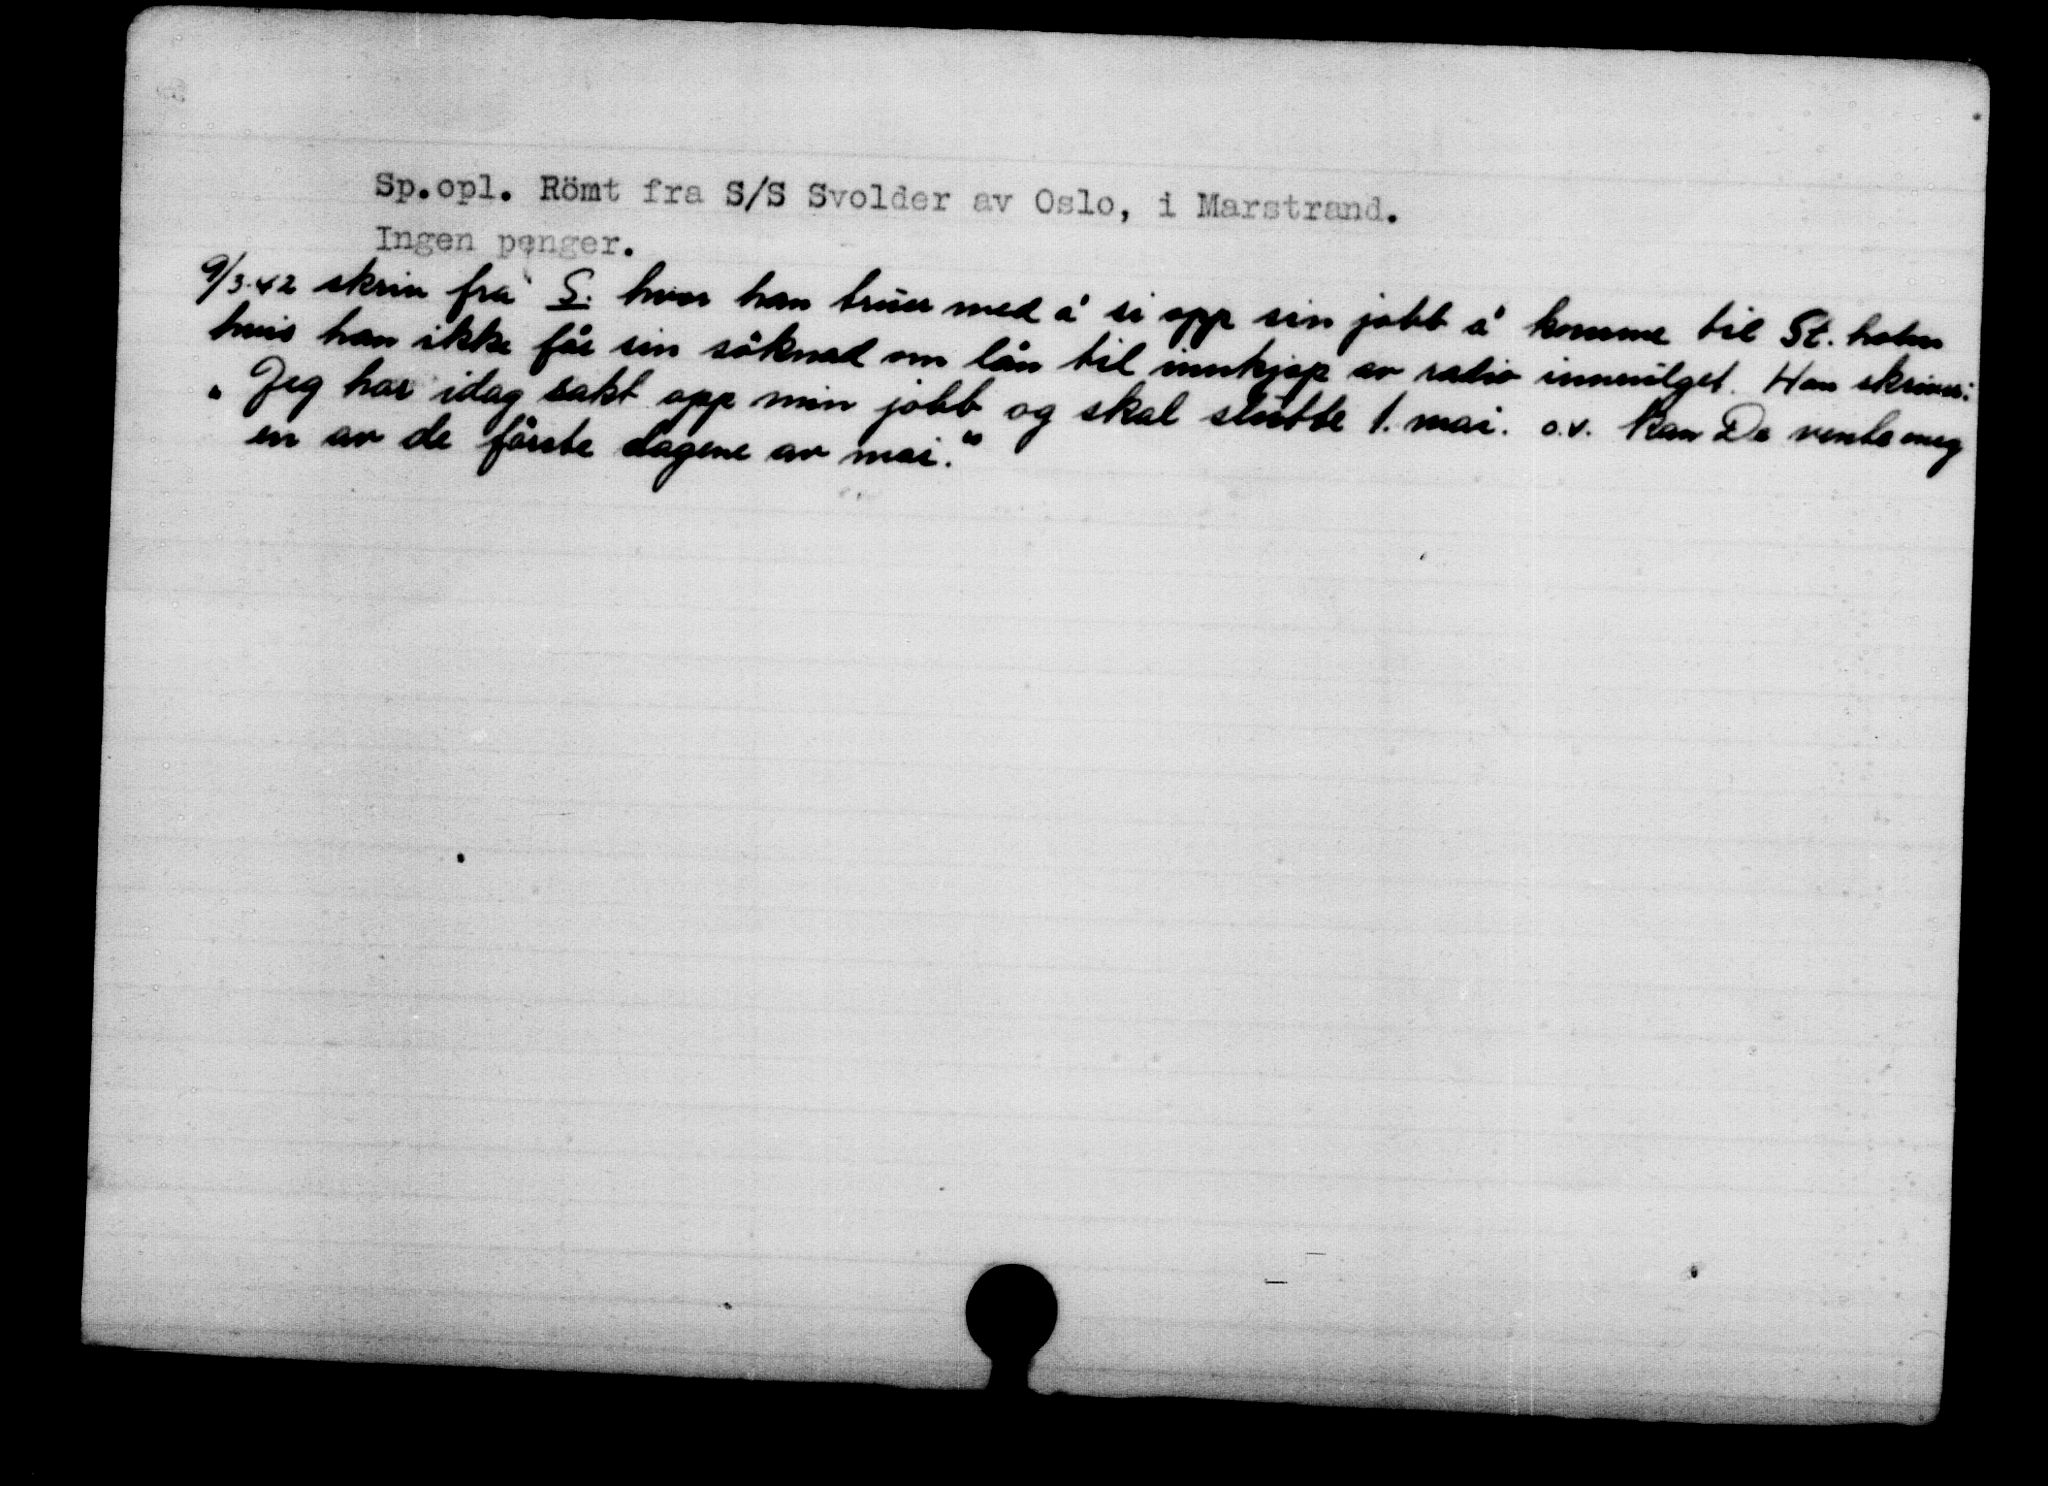 Sp.opl. Römt fra S/S Svolder av Oslo, i Marstrand.
Ingen penger.
9/3.42 skriv frå S. hvor han truer med å si opp sin jobb å komme til St. holm
hvis han ikke får sin söknad om lån til innkjøp av radio innvilget. Han skriver:
"Jeg har idag sakt opp min jobb og skal slutte 1. mai. o.v. kan De vente meg
en av de förste dagene av mai."